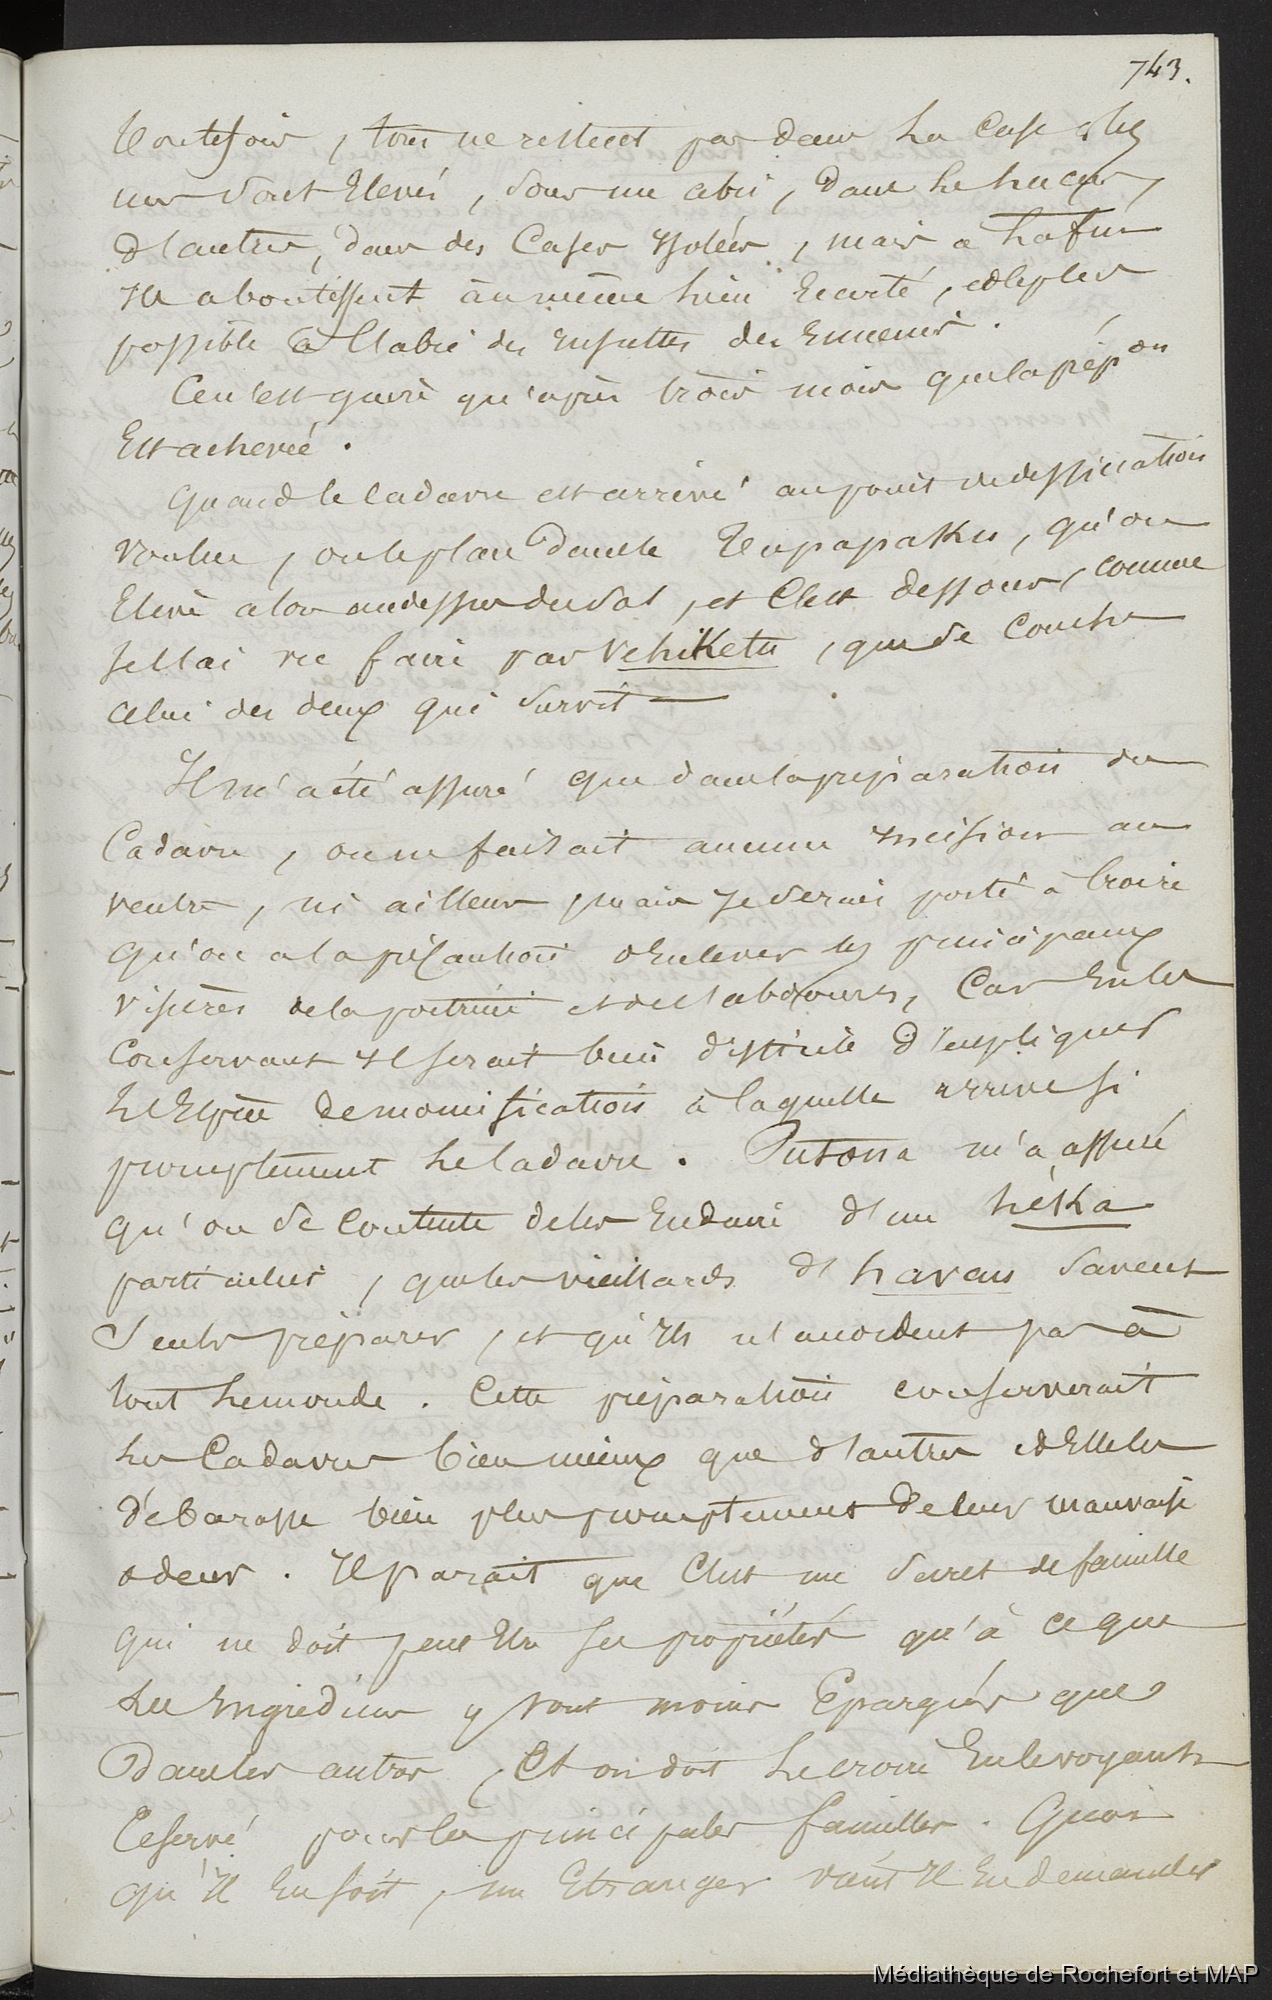 743.
toutefois, tous ne restent pas dans la Case, les
uns sont Elevés, sous un abri, dans le
d'autres, dans des Cases Isolées, mais a la fin
Ils aboutissent à un même lieu Ecarté, et le plus
possible à l'abri des insultes des Ennemis.
Ce n'est guère qu'après trois mois que la pépon
Est achevée.
Quand le Cadavre est arrivé au point de dessiccation
voulue, on le place dans le Tupapakus, qu'on
Elève alors au dessus du sol, et C'est dessous, comme
je l'ai vu faire par Vehiketu, que se couche
celui des deux qui survit
Il m'a été assuré que dans la préparation du
Cadavre, on ne faisait aucune incision au
ventre, ni ailleurs, mais je serais porté à Croire
qu'on a la précaution d'Enlever les principaux
viscères de la poitrine et de l'abdomen, Car En les
Conservant il serait bien difficile d'expliquer
L'Espèce de momification à laquelle arrive si
promptement le Cadavre. Putona m'a assuré
qu'on se Contente de les Enduire d'un héka
particulier, que les vieillards d'havau savent
seuls préparer, et qu'Ils n'accordent pas à
tout le monde. Cette préparation conserverait
les Cadavres bien mieux que d'autres et Elle les
débarasse bien plus promptement de leur mauvaise
odeur. Il parait que C'est un secret de famille
qui ne doit peut Etre ses propriétés qu'à ce que
les Ingrédiens y sont moins Epargnés que
dans les autres, Et on doit le croire En le voyant
reservé pour les principales familles. Quoi
qu'Il En soit, un Etranger vient Il En demander
Médiathèque de Rochefort et MAP